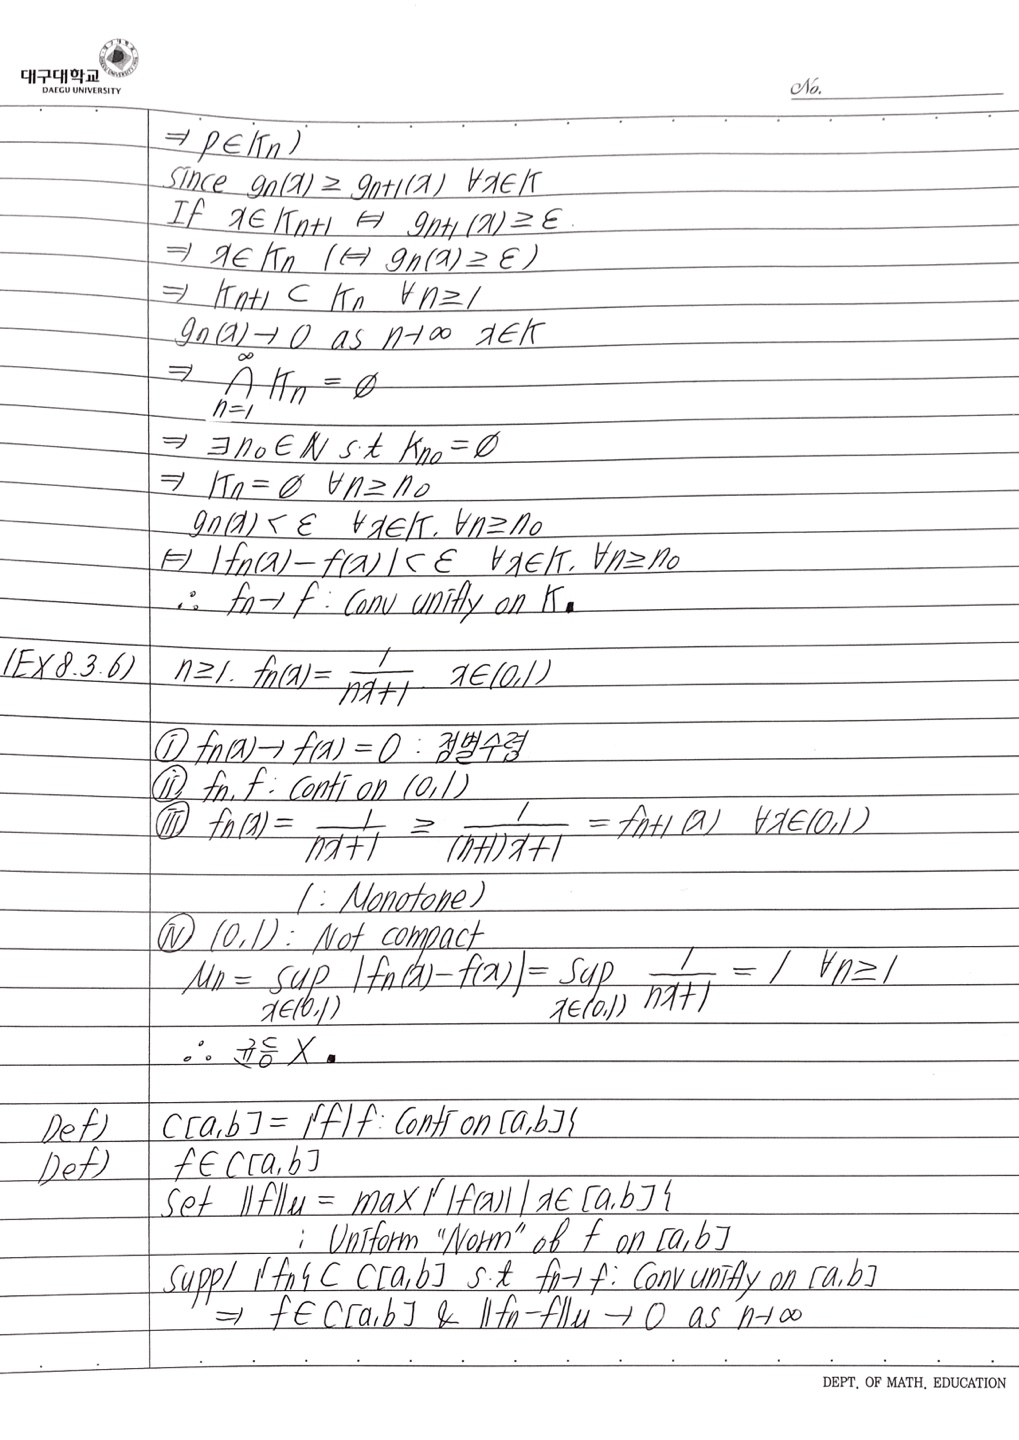 대구대학교
DAEGU UNIVERSITY
No.
⇒ p∈Kn)
Since gn(x) ≥ gn+1(x) ∀x∈K
If x∈Kn+1 ⇔ gn+1(x) ≥ ε.
⇒ x∈Kn (⇔ gn(x) ≥ ε)
⇒ Kn+1 ⊂ Kn ∀n≥1
gn(x)→0 as n→∞ x∈K
⇒ ∞⋂n=1 Kn = ∅
⇒ ∃n0∈N s.t Kn0 = ∅
⇒ Kn = ∅ ∀n≥n0
gn(x) < ε ∀x∈K. ∀n≥n0
⇔ |fn(x)-f(x)| < ε ∀x∈K. ∀n≥n0
∴ fn→f : Conv unifly on K.
(EX 8.3.6) n≥1. fn(x) = 1/(nx+1). x∈(0,1)
ⓘ fn(x)→f(x)=0 : 점별수렴
ⓘⓘ fn, f : Conti on (0,1)
ⓘⓘⓘ fn(x) = 1/(nx+1) ≥ 1/((n+1)x+1) = fn+1(x) ∀x∈(0,1)
(: Monotone)
ⓘⓥ (0,1) : Not compact
Mn = sup x∈(0,1) |fn(x)-f(x)| = sup x∈(0,1) 1/(nx+1) = 1 ∀n≥1
∴ 균등 X.
Def) C[a,b] = {f|f : Conti on [a,b]}
Def) f∈C[a,b]
Set ||f||u = max{|f(x)| | x∈[a,b]}
: Uniform "Norm" of f on [a,b]
Supp) {fn} ⊂ C[a,b] s.t fn→f : Conv unifly on [a,b]
⇒ f∈C[a,b] & ||fn-f||u → 0 as n→∞
DEPT. OF MATH. EDUCATION